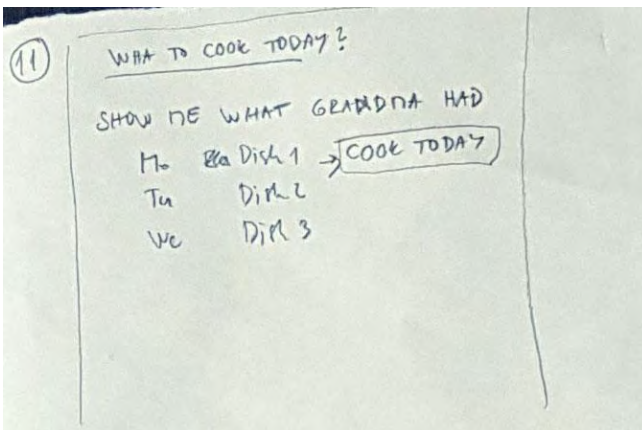 11
WHA TO COOK TODAY?
SHOW ME WHAT GRANDMA HAD
Mo Dish 1 → COOK TODAY
Tu Dish 2
We Dish 3